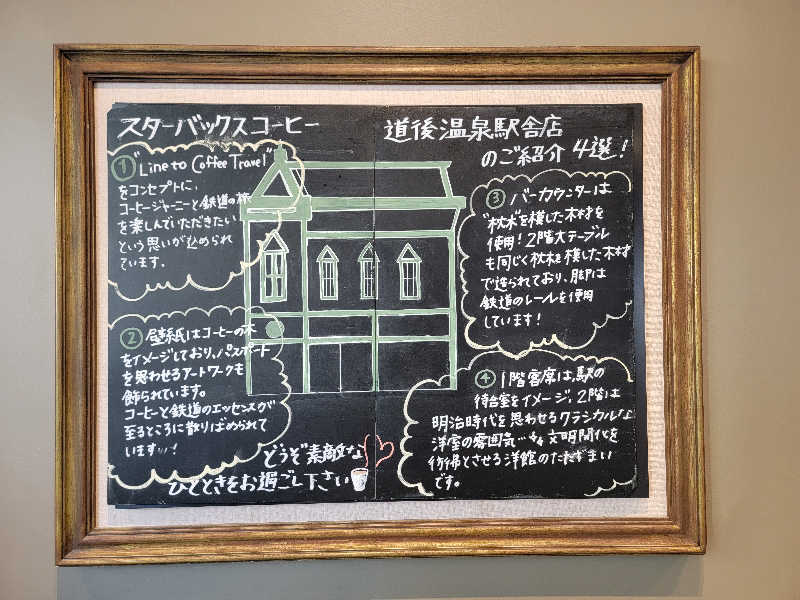 スターバックスコーヒー 道後温泉駅舎店
のご紹介 4選!
① "Line to Coffee Travel"
をコンセプトに、
コーヒージャーニーと鉄道の旅
を楽しんでいただきたい
という思いが込められ
ています。
② 壁紙はコーヒーの木
をイメージしており、パスポート
を思わせるアートワークも
飾られています。
コーヒーと鉄道のエッセンスが
至るところに散りばめられて
います!
③ バーカウンターは
"枕木"を模した木材を
使用!2階大テーブル
も同じく枕木を模した木材
で造られており、脚は
鉄道のレールを使用
しています!
④ 1階客席は、駅の
待合室をイメージ。2階は
明治時代を思わせるクラシカルな
洋室の雰囲気… 文明開化を
彷彿とさせる洋館のたたずまい
です。
どうぞ素敵な
ひとときをお過ごし下さい